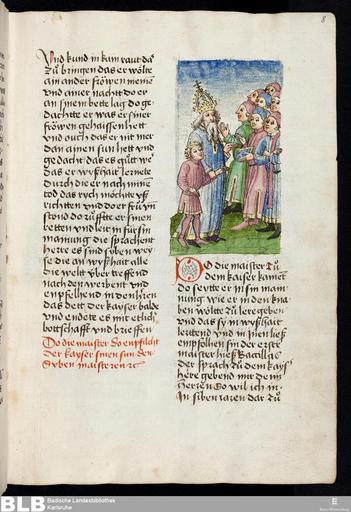 8
Vnd kund in kam raut da
zů bringen das er wölte
ain ander fröwen nemē
vnd ainer nachtt do er
an sinem bette lag do ge
dachtte er was er siner
fröwen gehaissen hett
vnd ouch das er nit mer
dan ainen sun hett vnd
gedacht das es gůtt we
das er wyßhait lernete
durch die er nach
tod das rych möchte
richten vnd do er
stond do růfftte er sinen
retten vnd leit in für sin
mainung die sprachent
herre es sind syben wey
se die an wyßhait alle
die welt über treffend
nach den werbent vnd
enpfelhend in den
das dett der kayser bald
vnd endete es mit etlich
bottschafft vnd brieffen
Do die maister do enpfilcht
der kayser sinen sun den
syben maisteren
Do die maister zů
dem kaiser kament
do seytte er in sin main
nung wie er in den kna
ben wölte zů lere geben
vnd das sy in wyßhait
lertend vnd in
enpfolhen sin der erste
maister hieß
der sprach zů dem kays
here gebend mir den
herren so wil ich in
in siben iaren dar zů
BLB
Badische Landesbibliothek
Karlsruhe
Baden-Württemberg